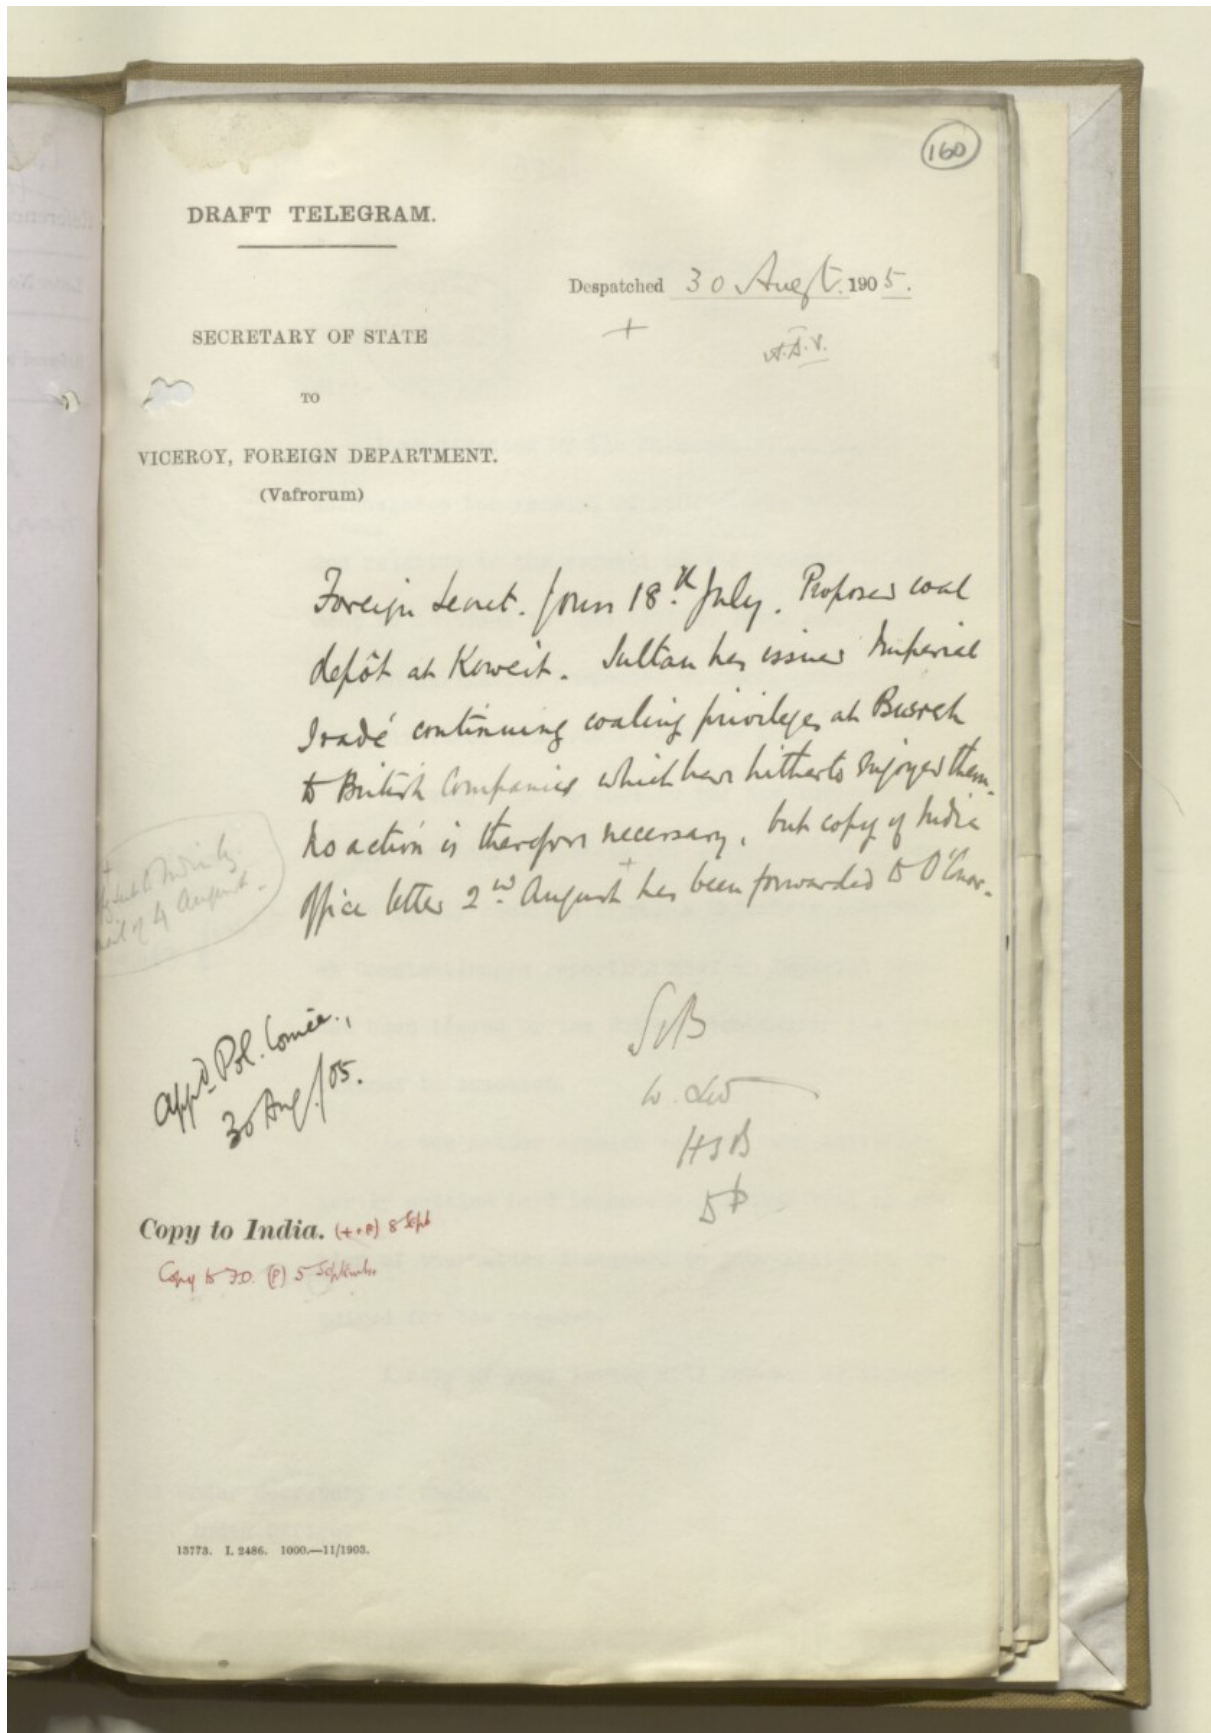 160
DRAFT TELEGRAM.
Despatched 30 Augt. 1905.
+
SECRETARY OF STATE
TO
VICEROY, FOREIGN DEPARTMENT.
(Vafrorum)
Foreign Secret. Yours 18th. July. Proposed coal
depôt at Koweit. Sultan has issued Imperial
Iradé continuing coaling privileges at Busreh
to British Companies which have hitherto enjoyed them.
No action is therefore necessary, but copy of India
+
Office letter 2nd. August has been forwarded to O'Conor.
+
to India by
mail of 4 August.
Appd. Pol. Comee.,
30 Aug/05.
HSB
Copy to India. (+ P) 8 Sept
Copy to F.O. (P) 5 September
13773. I. 2486. 1000.—11/1903.